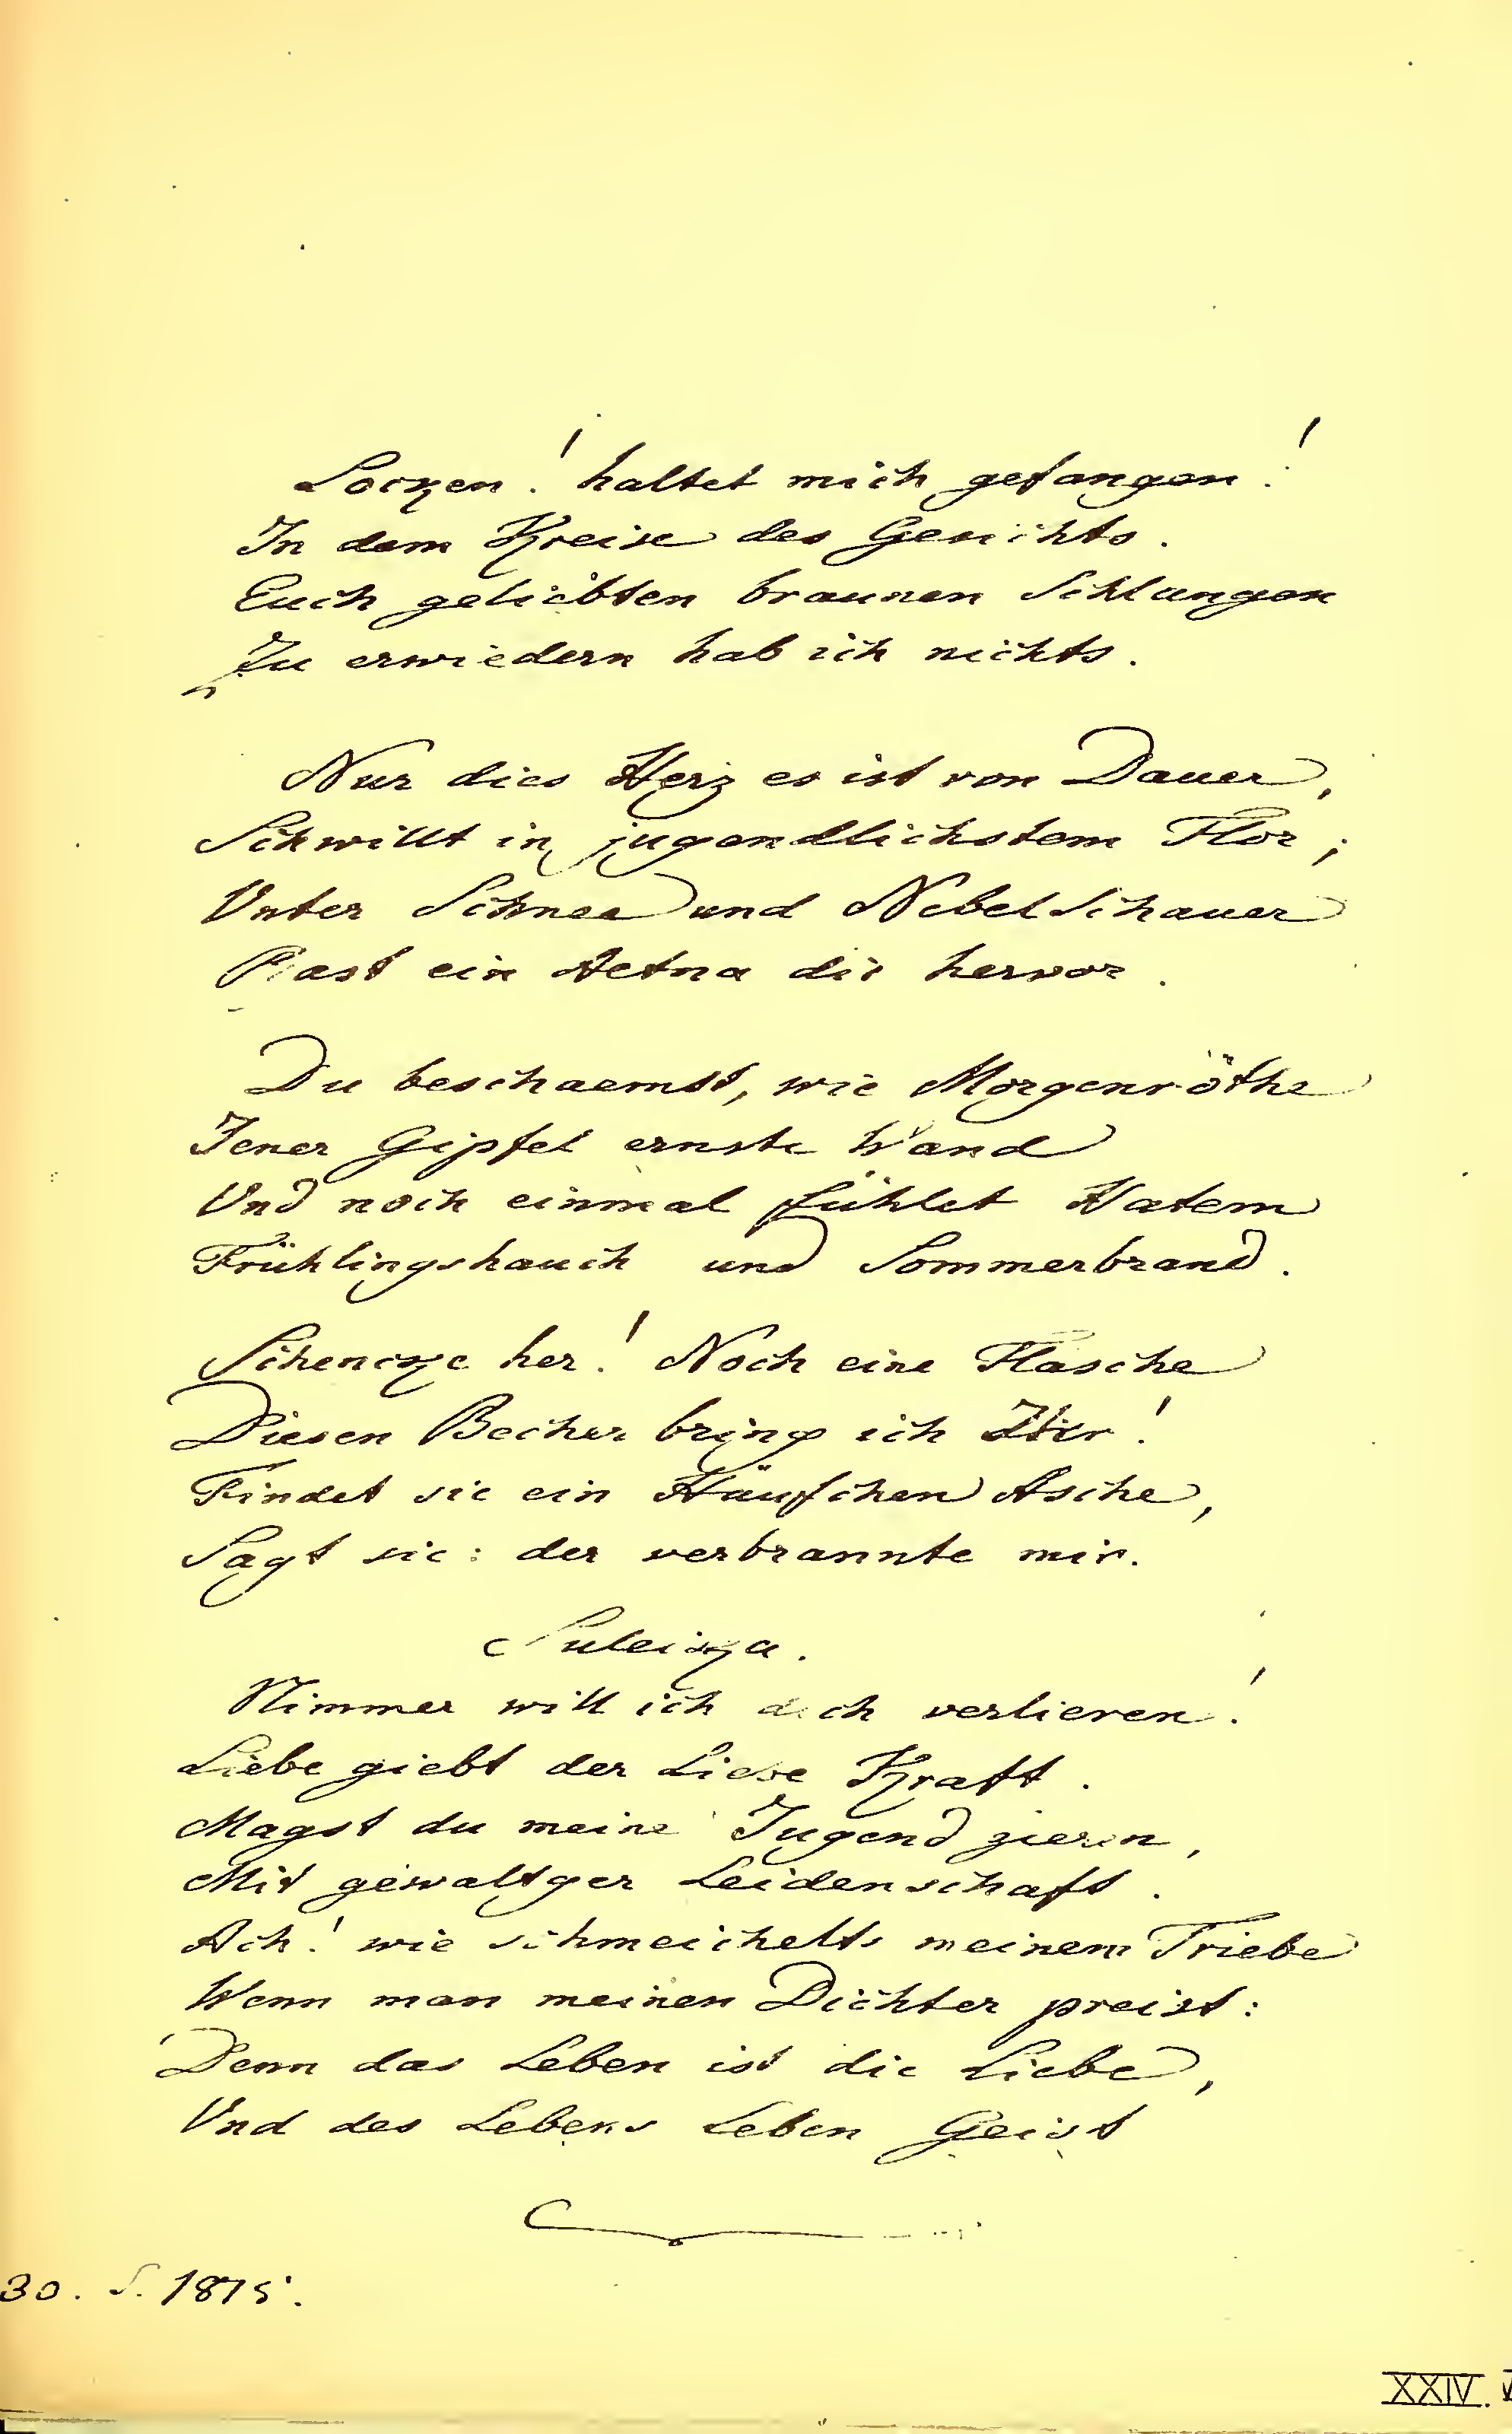 Locken! haltet mich gefangen!
In dem Kreise des Gesichts.
Euch geliebten braunen Schlangen
Zu erwiedern hab ich nichts.
Nur dies Herz es ist von Dauer,
Schwillt in jugendlichstem Flor;
Unter Schnee und Nebelschauer
Rast ein Aetna dir hervor.
Du beschaemst, wie Morgenröthe
Jener Gipfel ernste Wand
Und noch einmal fühlet Hatem
Frühlingshauch und Sommerbrand.
Schencke her! Noch eine Flasche
Diesen Becher bring ich Ihr!
Findet sie ein Häufchen Asche,
Sagt sie: der verbrannte mir.
Suleika.
Nimmer will ich dich verlieren!
Liebe giebt der Liebe Kraft.
Magst du meine Jugend zieren,
Mit gewaltger Leidenschaft.
Ach! wie schmeichelts meinem Triebe
Wenn man meinen Dichter preist:
Denn das Leben ist die Liebe,
Und des Lebens Leben Geist
30. S. 1815.
XXIV.